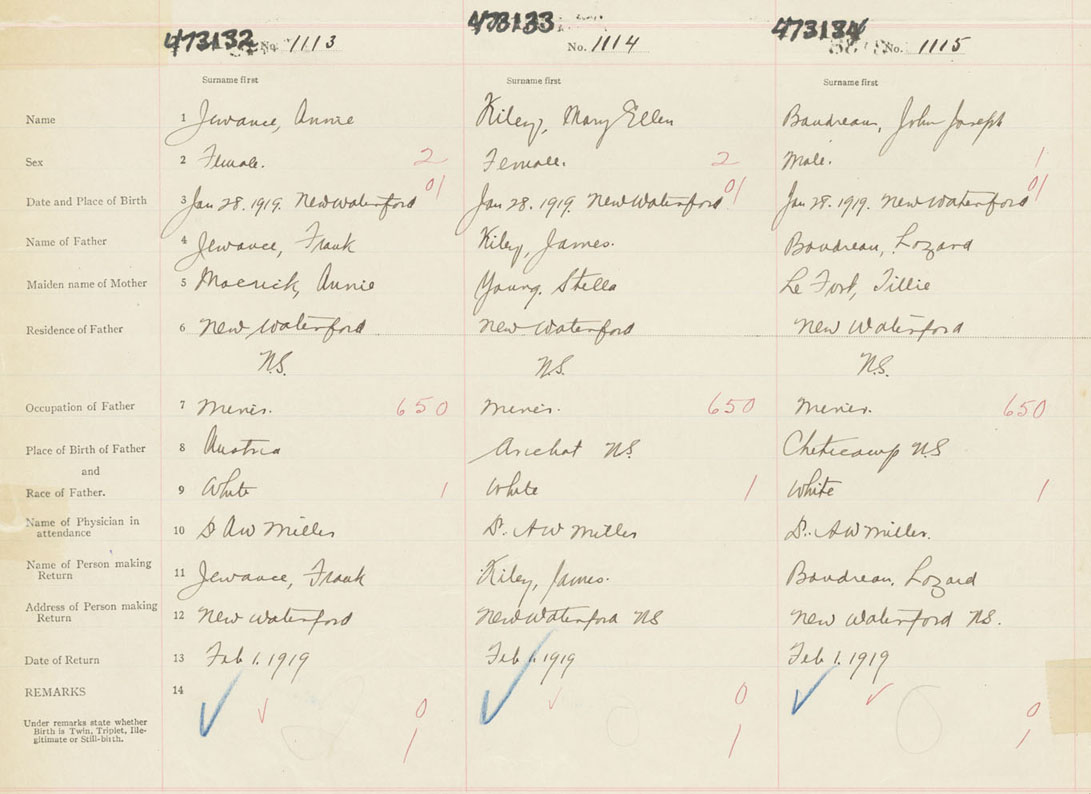 473132 No. 1113 473133 No. 1114 473134 No. 1115
Surname first Surname first Surname first
Name 1 Jewance, Annie Kiley, Mary Ellen Boudreau, John Joseph
Sex 2 Female. 2 Female. 2 Male. 1
Date and Place of Birth 3 Jan 28. 1919. New Waterford 01 Jan 28. 1919. New Waterford 01 Jan 28. 1919. New Waterford 01
Name of Father 4 Jewance, Frank Kiley, James. Boudreau, Lozard
Maiden name of Mother 5 Annie Young. Stella Le Fort, Tillie
Residence of Father 6 New Waterford New Waterford New Waterford
N.S. N.S. N.S.
Occupation of Father 7 Miner. 650 Miner. 650 Miner. 650
Place of Birth of Father 8 Austria Arichat N.S. Cheticamp N.S
and
Race of Father. 9 White 1 White 1 White 1
Name of Physician in
attendance 10 Dr AW Miller Dr. AW Miller Dr. AW Miller.
Name of Person making
Return 11 Jewance, Frank Kiley, James. Boudreau, Lozard
Address of Person making
Return 12 New Waterford New Waterford NS New Waterford N.S.
Date of Return 13 Feb 1. 1919 Feb 1. 1919 Feb 1. 1919
REMARKS 14
0 0 0
Under remarks state whether
Birth is Twin, Triplet, Ille-
gitimate or Still-birth.
1 1 1